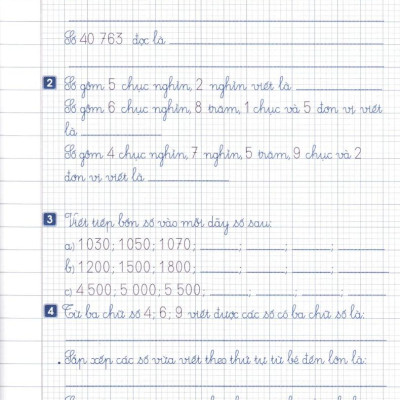 Số 40 763 đọc là
2 Số gồm 5 chục nghìn, 2 nghìn viết là
Số gồm 6 chục nghìn, 8 trăm, 1 chục và 5 đơn vị viết
là
Số gồm 4 chục nghìn, 7 nghìn, 5 trăm, 9 chục và 2
đơn vị viết là
3 Viết tiếp bốn số vào mỗi dãy số sau:
a) 1030; 1050; 1070; ; ; ;
b) 1200; 1500; 1800; ; ; ;
c) 4500; 5 000; 5 500; ; ; ;
4 Từ ba chữ số 4; 6; 9 viết được các số có ba chữ số là:
. Sắp xếp các số vừa viết theo thứ tự từ bé đến lớn là: